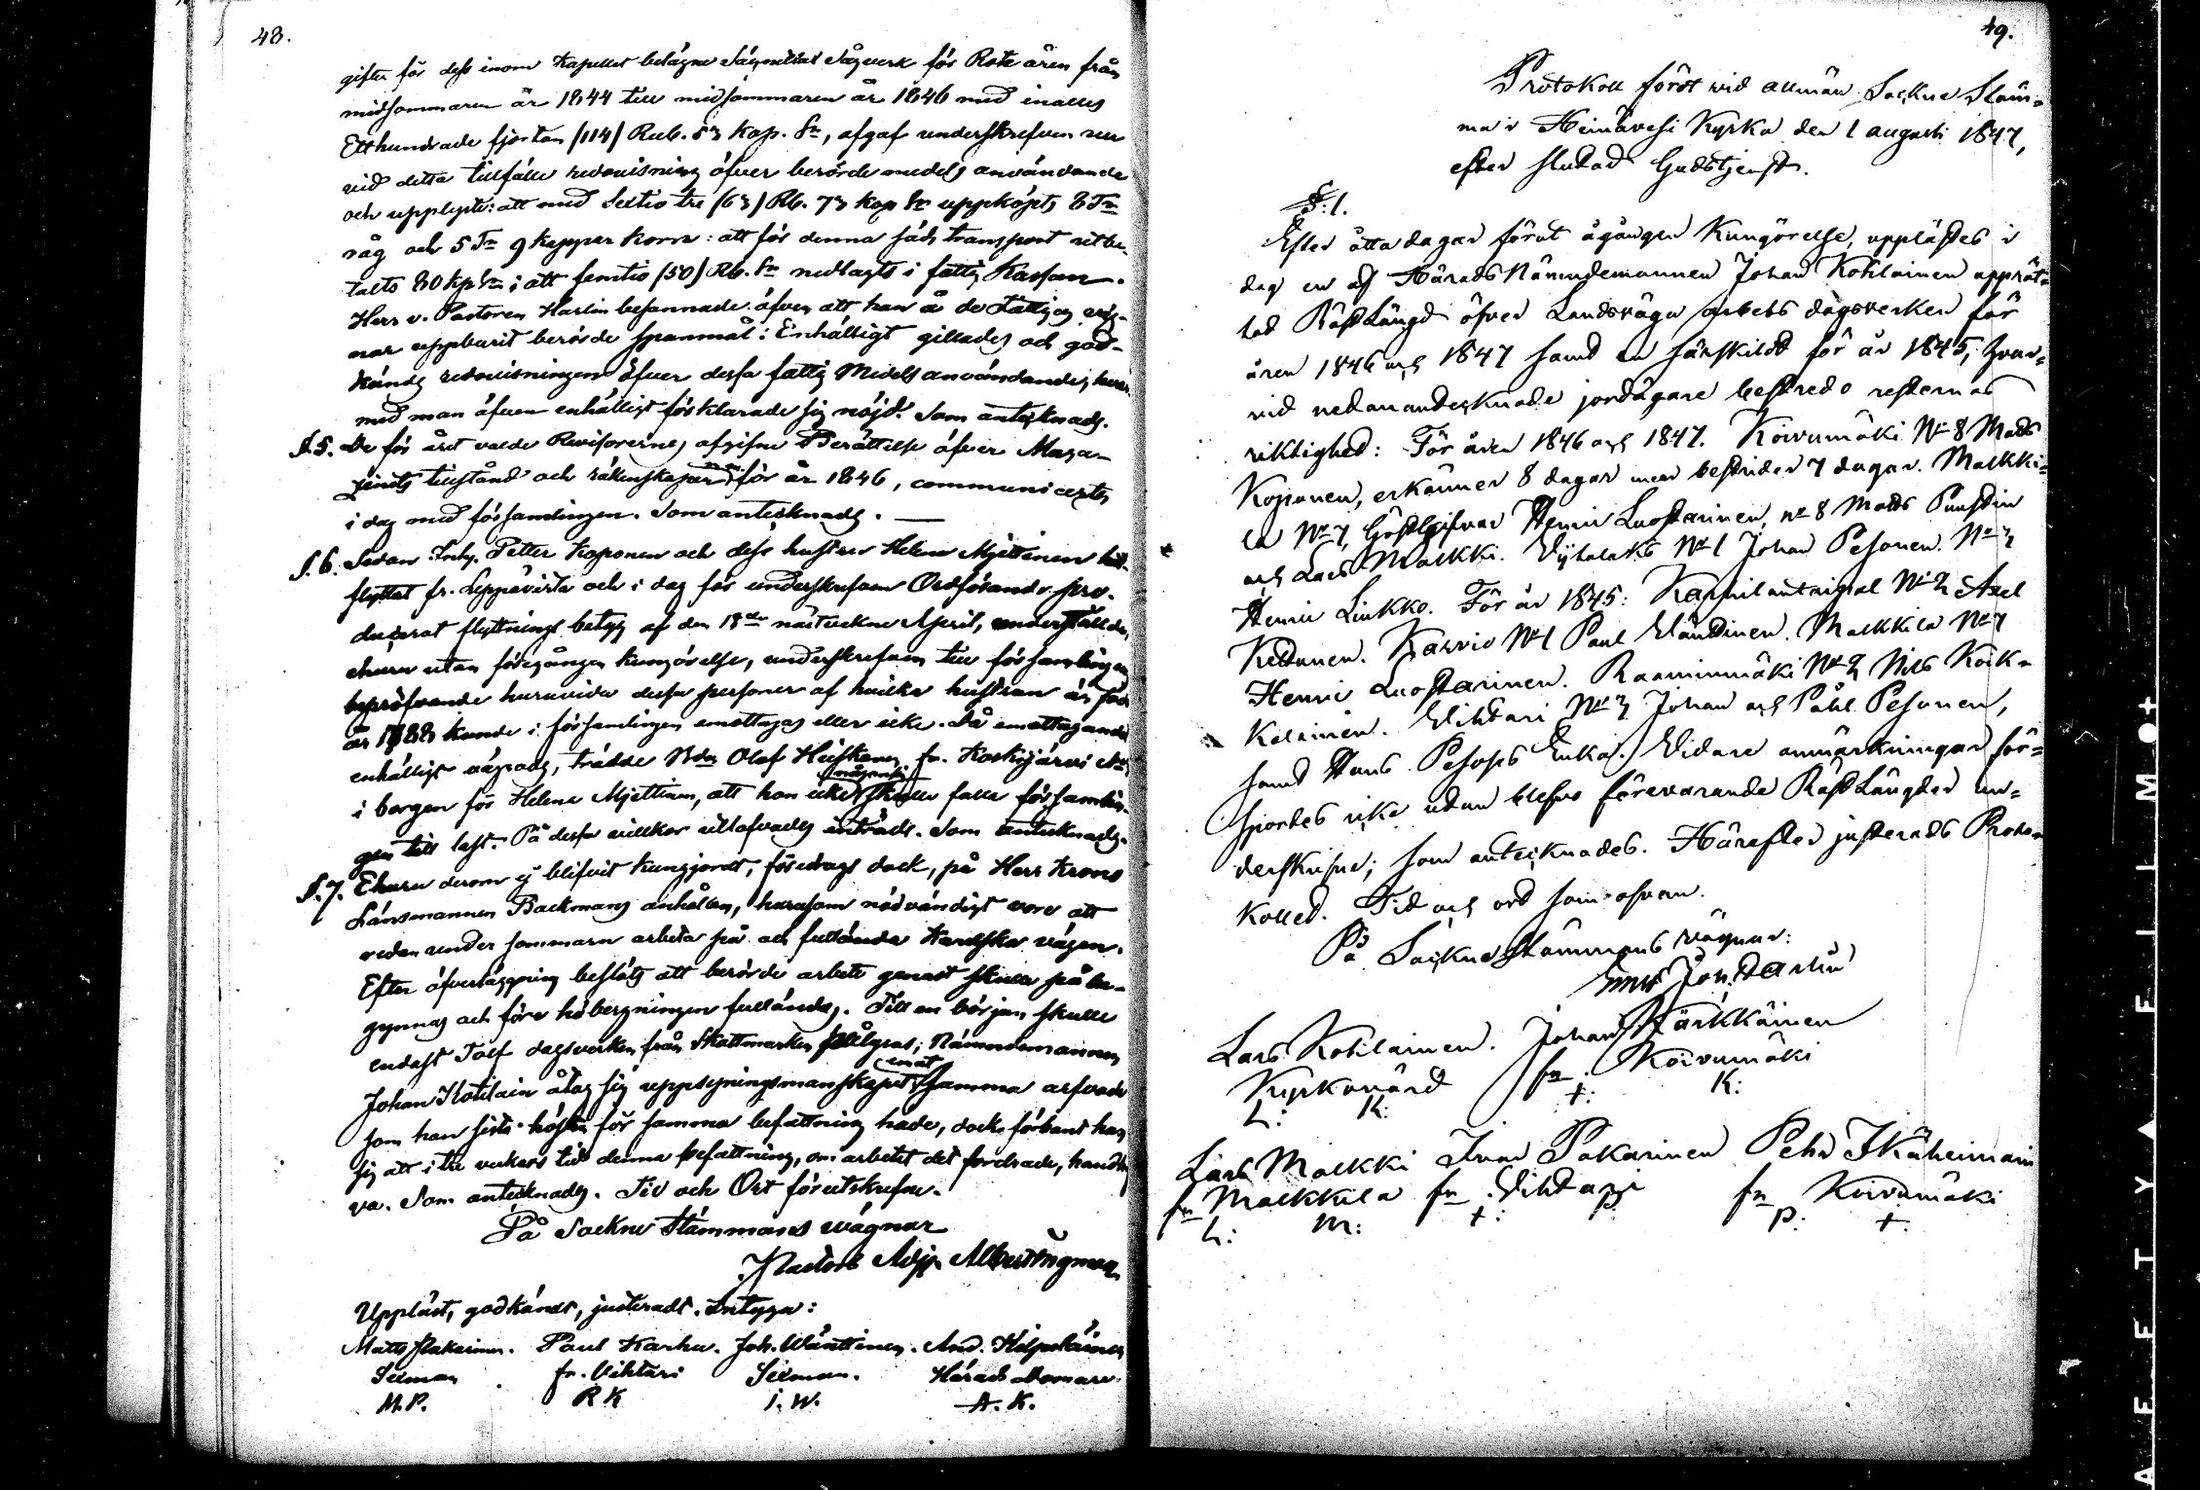 48.
gifter för dess inom Kapellet belägne Sågverk för Rote åren från
midsommaren år 1844 till midsommaren år 1846 med inalles
Etthundrade fjorton /114/ Rub. 53 Kop. Sr, afgaf underskrefven nu
vid detta tillfälle redovisning öfver berörde medels användande
och upplyste: att med Sextio tre /63/ Rb. 73 kop Sr uppköpts 8 Tr
råg och 5 Tr 9 kappar korn: att för denna säds transport utbe-
talts 80 kp Sr; att femtio /50/ Rb. Sr nedlagts i fattig Kassan.
Herr v. Pastoren Harlin besannade äfven att han å de Fattiges väg-
nar uppburit berörde spannmål: Enhälligt gillades och god-
kändes redovisningen öfver dessa fattig Medels användande, hvar-
med man äfven enhälligt förklarade sig nöjd. Som antecknades.
§.5. De för året valde Revisorernes afgifne Berättelse öfver Maga-
zinets tillstånd och räkenskaper för år 1846, communicerades
i dag med församlingen. Som antecknades. —
§.6. Sedan Inh. Petter Koponen och dess hustru Helena Mjettinen hit-
flyttat fr. Leppävirta och i dag för underskrefven Ordförande pro-
ducerat flyttnings betyg af den 18de nästvekne April, underställdes,
ehuru utan föregången kungörelse, underskrefven till församlingens
bepröfvande huruvida dessa personer af hvilka hustrun är född
år kunde i församlingen emottagas eller icke. Då emottagandet
enhälligt vägrades, trädde Bdn Olof Heiskanen fr. Koskijärvi No
i borgen för Helena Mjettinen, att hon icke någonsin skulle falla församlin-
gen till last. På dessa villkor utlofvades inträde. Som antecknades.
§.7. Ehuru derom ej blifvit kungjordt, föredrogs dock, på Herr Krono
Länsmannen Backmans anhållan, hurusom nödvändigt vore att
redan under sommaren arbeta på och fullända Karvska vägen.
Efter öfverläggning beslöts att berörde arbete genast skulle påbe-
gynnas och före höbergningen fulländas. Till en början skulle
endast Tolf dagsverken från Skattmarken påläggas; Nämndemannen
Johan Kotilain åtog sig uppsyningsmanskapet emot samma arfvode
som han sista hösten för samma befattning hade, dock förband han
sig att i tre veckors tid denna befattning, om arbetet det fordrade, handha-
va. Som antecknades. Tid och Ort förutskrefne.
På Sockne Stämmans vägnar
Pastors Adj. Albert Ingman
Uppläst, godkändt, justeradt. Intyga:
Matts Pakarinen. Paul Karhu. Joh. Wänttinen. And. Hilpeläinen
Sexman fr. Vihtari Sexman. Härads Domare.
M. P. R K I. W. A. K.
49.
Protokoll fördt vid allmän Sockne Stäm-
ma i Heinävesi Kyrka den 1 augusti 1847,
efter slutad Gudstjenst.
§:1.
Efter åtta dagar förut ågången Kungörelse, upplästes i
dag en af Härads Nämndemannen Johan Kotilainen upprät-
tad Rest Längd öfver Landsvägs arbets dagsverken för
åren 1846 och 1847 samt en särskild för år 1845, hvar-
vid nedanantecknade jordägare bestredo resternas
riktighet: För åren 1846 och 1847. Koivumäki No 8 Mats
Koponen, erkänner 8 dagar men bestrider 7 dagar. Malkki-
la No 7 Gästgifvar Henric Luostarinen, no 8 Mats Punstin
och Lars Malkki. Vihtalaks No 1 Johan Pesonen. No 3
Henric Linkko. För år 1845: No 2 Axel
Kettunen. Karvio No 1 Paul Wänttinen. Malkkila No 7
Henric Luostarinen. Raaminmäki No 2 Nils Kok-
kalainen. Vihtari No 3 Johan och Påhl Pesonen,
samt Hans Pesoses Enka. Vidare anmärkningar för-
spordes icke utan blefvo förevarande Rest Längder un-
derskrifne; som antecknades. Härefter justerades Proto-
kollet. Tid och ord som ofvan.
På Sockne Stämmans vägnar:
Lars Kotilainen. Johan Kärkkäinen
Kyrkovärd fr. Koivumäki
L: K: +: K:
Lars Malkki Ivar Pakarinen Pehr Ikäheimoin
fr Malkkila fr. Vihtari fr Koivumäki
L: M: +: P: P: +